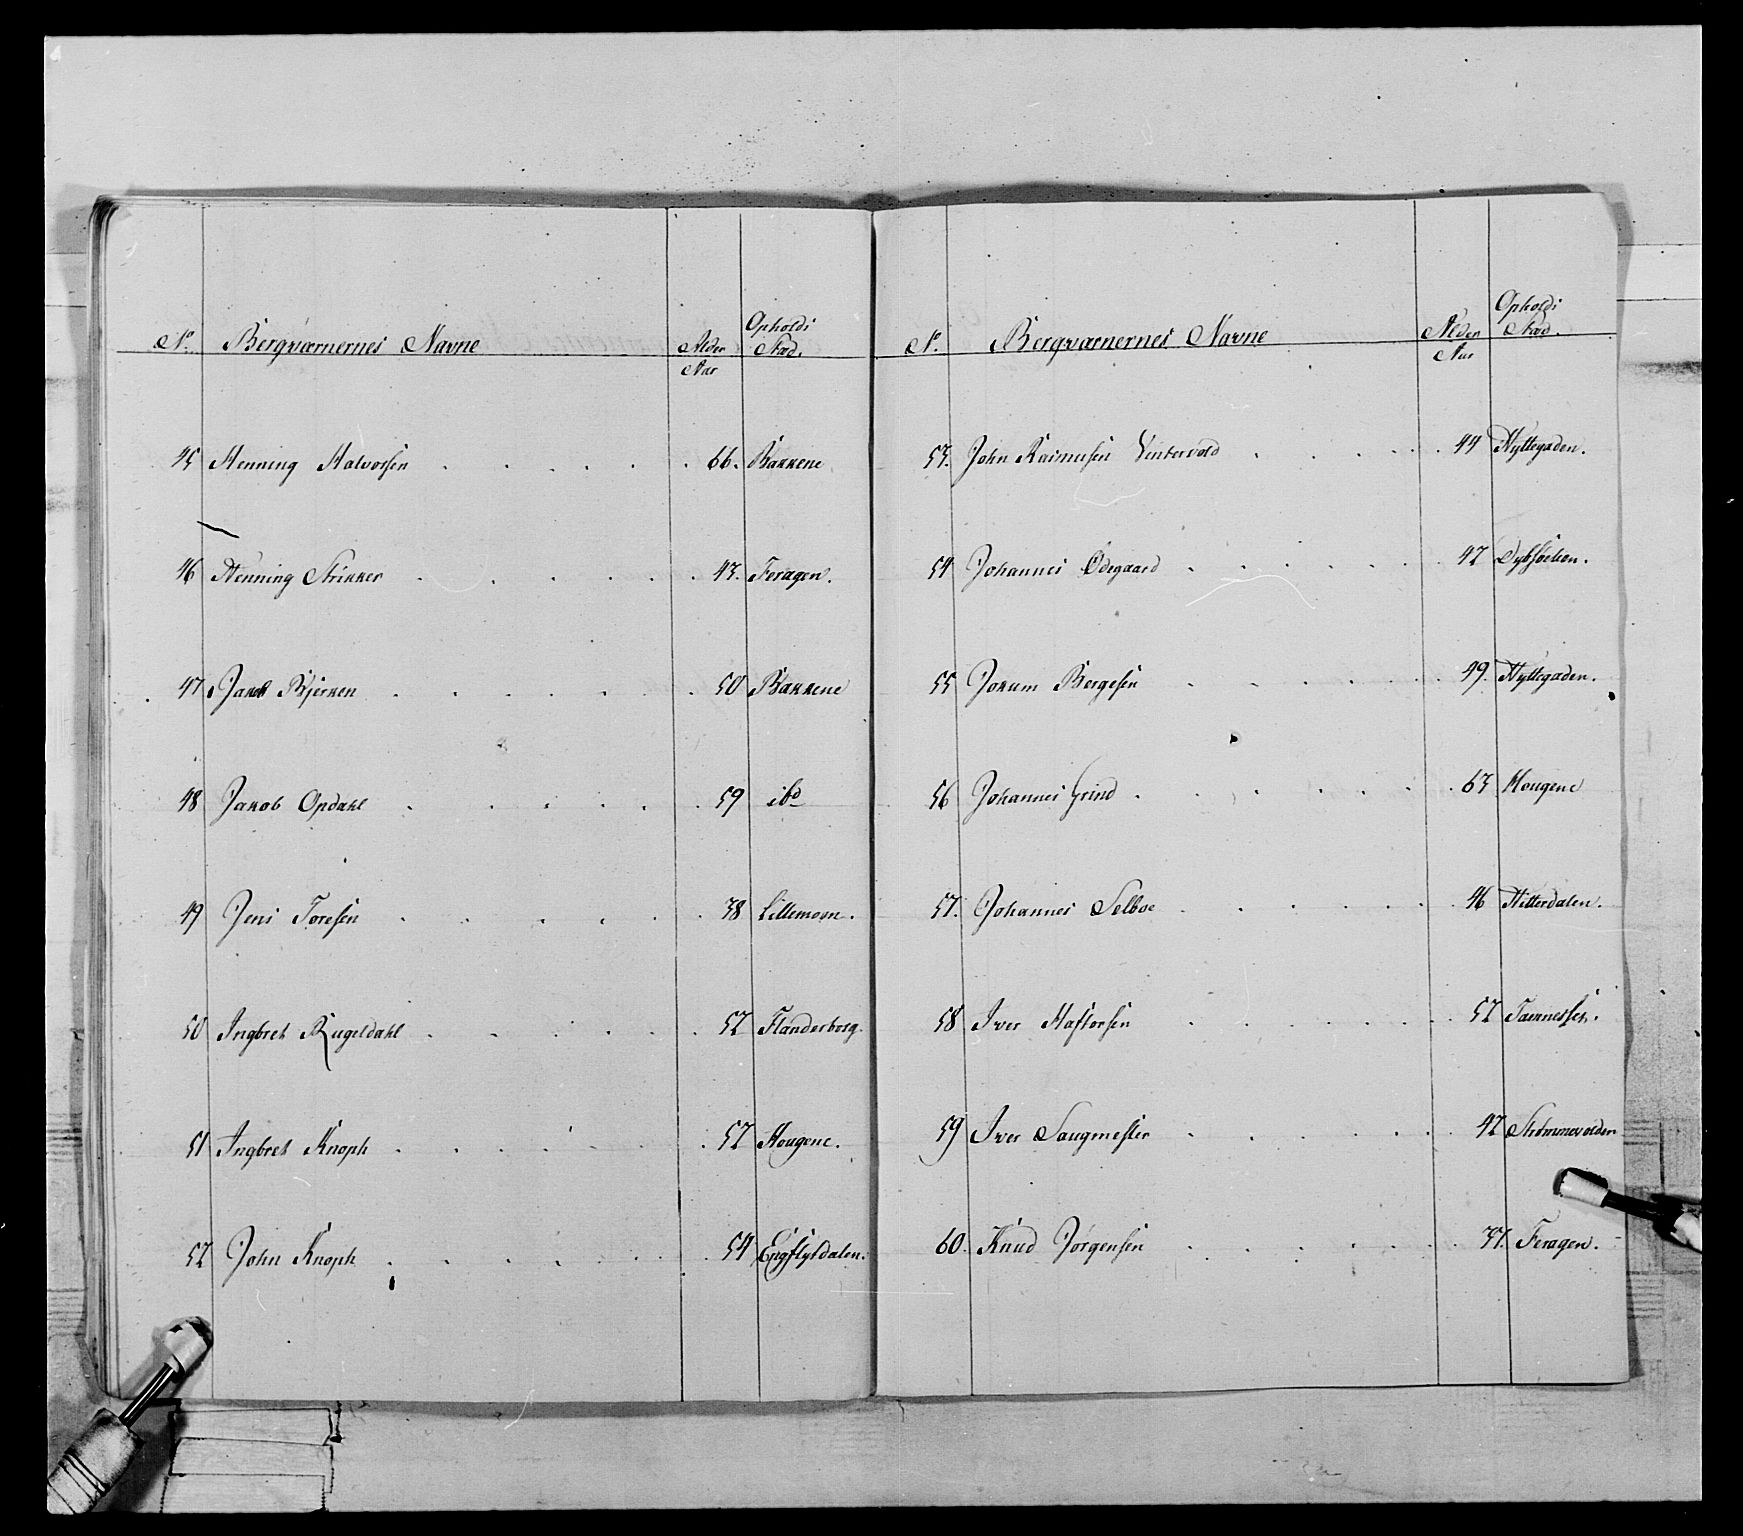 No. Bergværnernes Navne Alder Aar Opholds Stæd.
45 Henning Halvorsen 66. Bakkene
46 Henning Strikker 43. Feragen.
47 Jakob Bjerken 50 Bakkene
48 Jakob Opdahl 59 ibd
49 Jens Toresen 38 Lillemoen.
50 Ingbret Rugeldahl 52 Flanderborg.
51 Ingbret Knoph 52 Hougene.
52 John Knoph 54 Engflytdalen.
N. Bergværnernes Navne Alder Aar Opholds Stæd.
53. John Rasmusen Vintervold 44 Hyttegaden.
54 Johannes Ødegaard 42 Dybsøelien.
55 Jokum Bergesen 49. Hyttegaden.
56 Johannes Grind 63 Hougene
57. Johannes Selboe 46 Hitterdalen.
58 Iver Hastorsen 52 Tamnesset.
59 Iver Saugmester 42 Strømmevolden
60. Knud Jørgensen 37. Feragen.